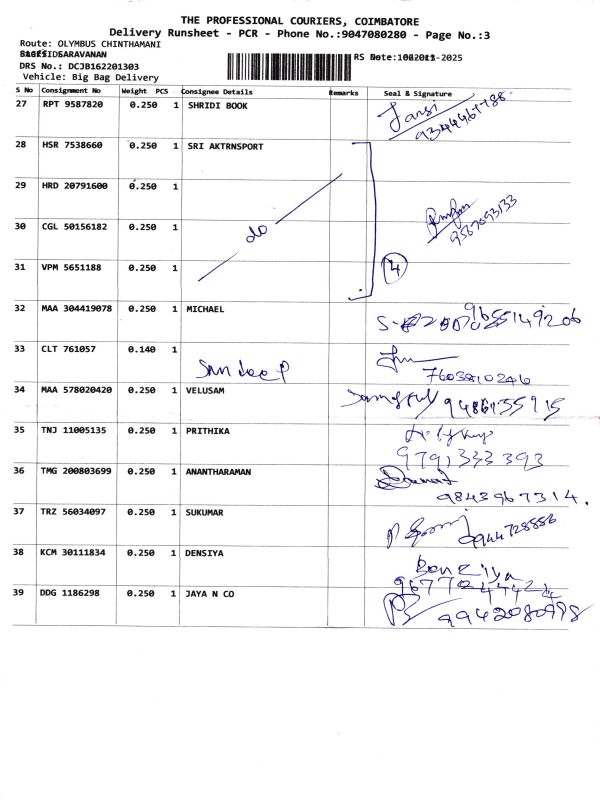 THE PROFESSIONAL COURIERS, COIMBATORE
Delivery Runsheet - PCR - Phone No.:9047080280 - Page No.:3
Route: OLYMBUS CHINTHAMANI
SARAVANAN RS Date: -2025
DRS No.: DCJB162201303
Vehicle: Big Bag Delivery
S No Consignment No Weight PCS Consignee Details Remarks Seal & Signature
27 RPT 9587820 0.250 1 SHRIDI BOOK
9344467788
28 HSR 7538660 0.250 1 SRI AKTRNSPORT
29 HRD 20791600 0.250 1
30 CGL 50156182 0.250 1 do
9567093133
31 VPM 5651188 0.250 1 4
32 MAA 304419078 0.250 1 MICHAEL
9655149206
33 CLT 761057 0.140 1 Sandeep
7603910246
34 MAA 578020420 0.250 1 VELUSAM 9486135915
35 TNJ 11005135 0.250 1 PRITHIKA
9791333393
36 TMG 200803699 0.250 1 ANANTHARAMAN
9843967314.
37 TRZ 56034097 0.250 1 SUKUMAR 9944728886
38 KCM 30111834 0.250 1 DENSIYA
39 DDG 1186298 0.250 1 JAYA N CO
9942080998